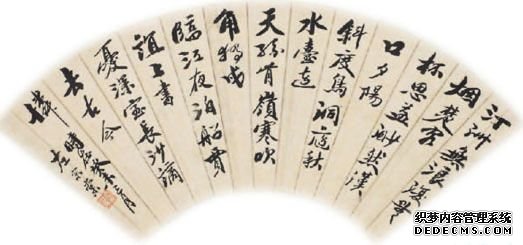 汀洲無浪復無
烟楚客
相思益渺然漢
口夕陽
斜度鳥洞庭秋
水遠連
天孤城背嶺寒吹
角獨戍
臨江夜泊船賈
誼上書
憂漢室長沙謫
去古今
憐
左宗棠
织梦内容管理系统
DEDECMS.COM